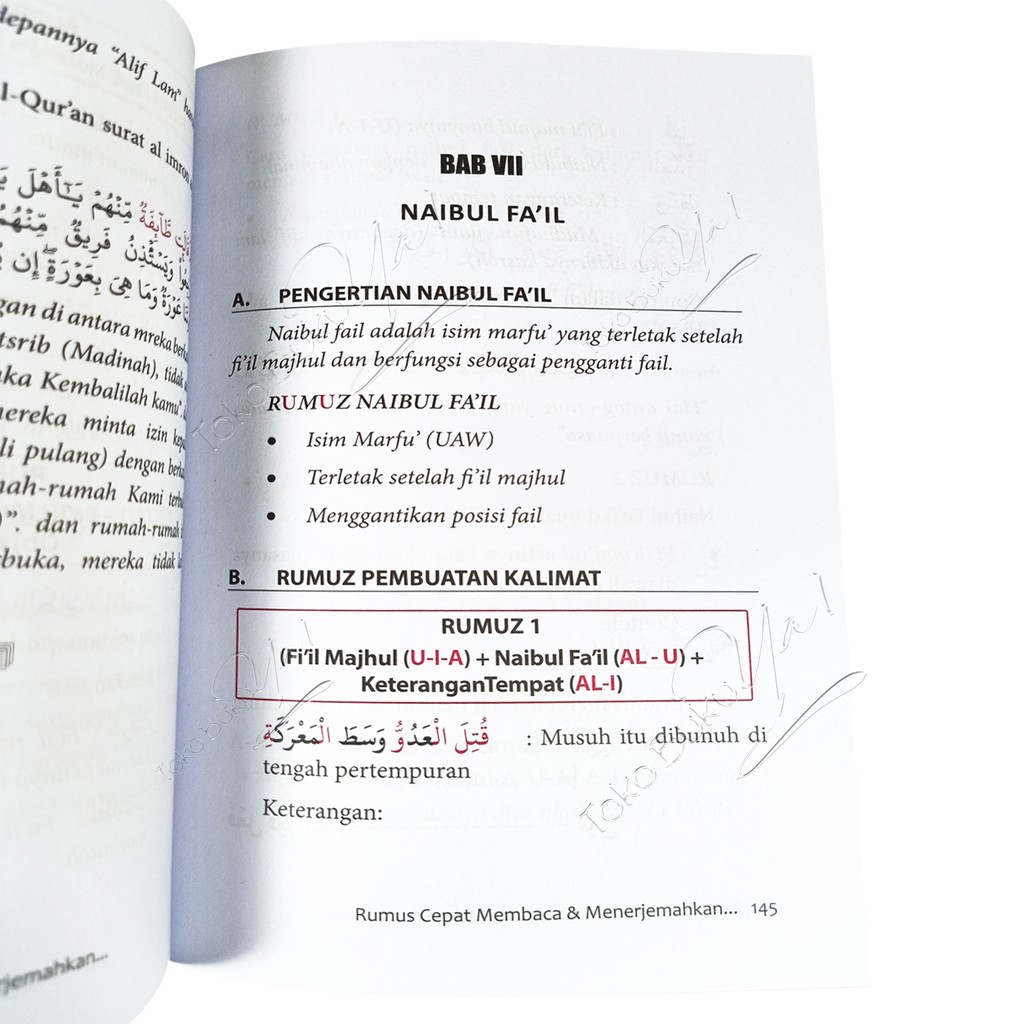 depannya "Alif Lam"
l-Qur'an surat al imron
طَّآئِفَةٌ مِّنْهُمْ يَٰٓأَهْلَ
وَيَسْتَْٔذِنُ فَرِيقٌ مِّنْهُمُ
عَوْرَةٌ وَمَا هِىَ بِعَوْرَةٍ إِن
gan di antara mreka
tsrib (Madinah), tidak
ka Kembalilah kamu".
nereka minta izin
li pulang) dengan
nah-rumah Kami
)". dan rumah-rumah
buka, mereka tidak
rjemahkan...
BAB VII
NAIBUL FA'IL
A. PENGERTIAN NAIBUL FA'IL
Naibul fail adalah isim marfu' yang terletak setelah
fi'il majhul dan berfungsi sebagai pengganti fail.
RUMUZ NAIBUL FA'IL
• Isim Marfu' (UAW)
• Terletak setelah fi'il majhul
• Menggantikan posisi fail
B. RUMUZ PEMBUATAN KALIMAT
RUMUZ 1
(Fi'il Majhul (U-I-A) + Naibul Fa'il (AL - U) +
KeteranganTempat (AL-I)
قُتِلَ الْعَدُوُّ وَسَطَ الْمَعْرَكَةِ : Musuh itu dibunuh di
tengah pertempuran
Keterangan:
Rumus Cepat Membaca & Menerjemahkan... 145